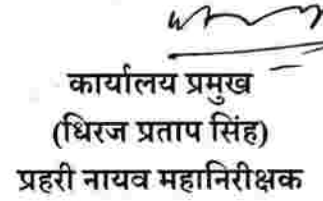 कार्यालय प्रमुख
(धिरज प्रताप सिंह)
प्रहरी नायव महानिरीक्षक